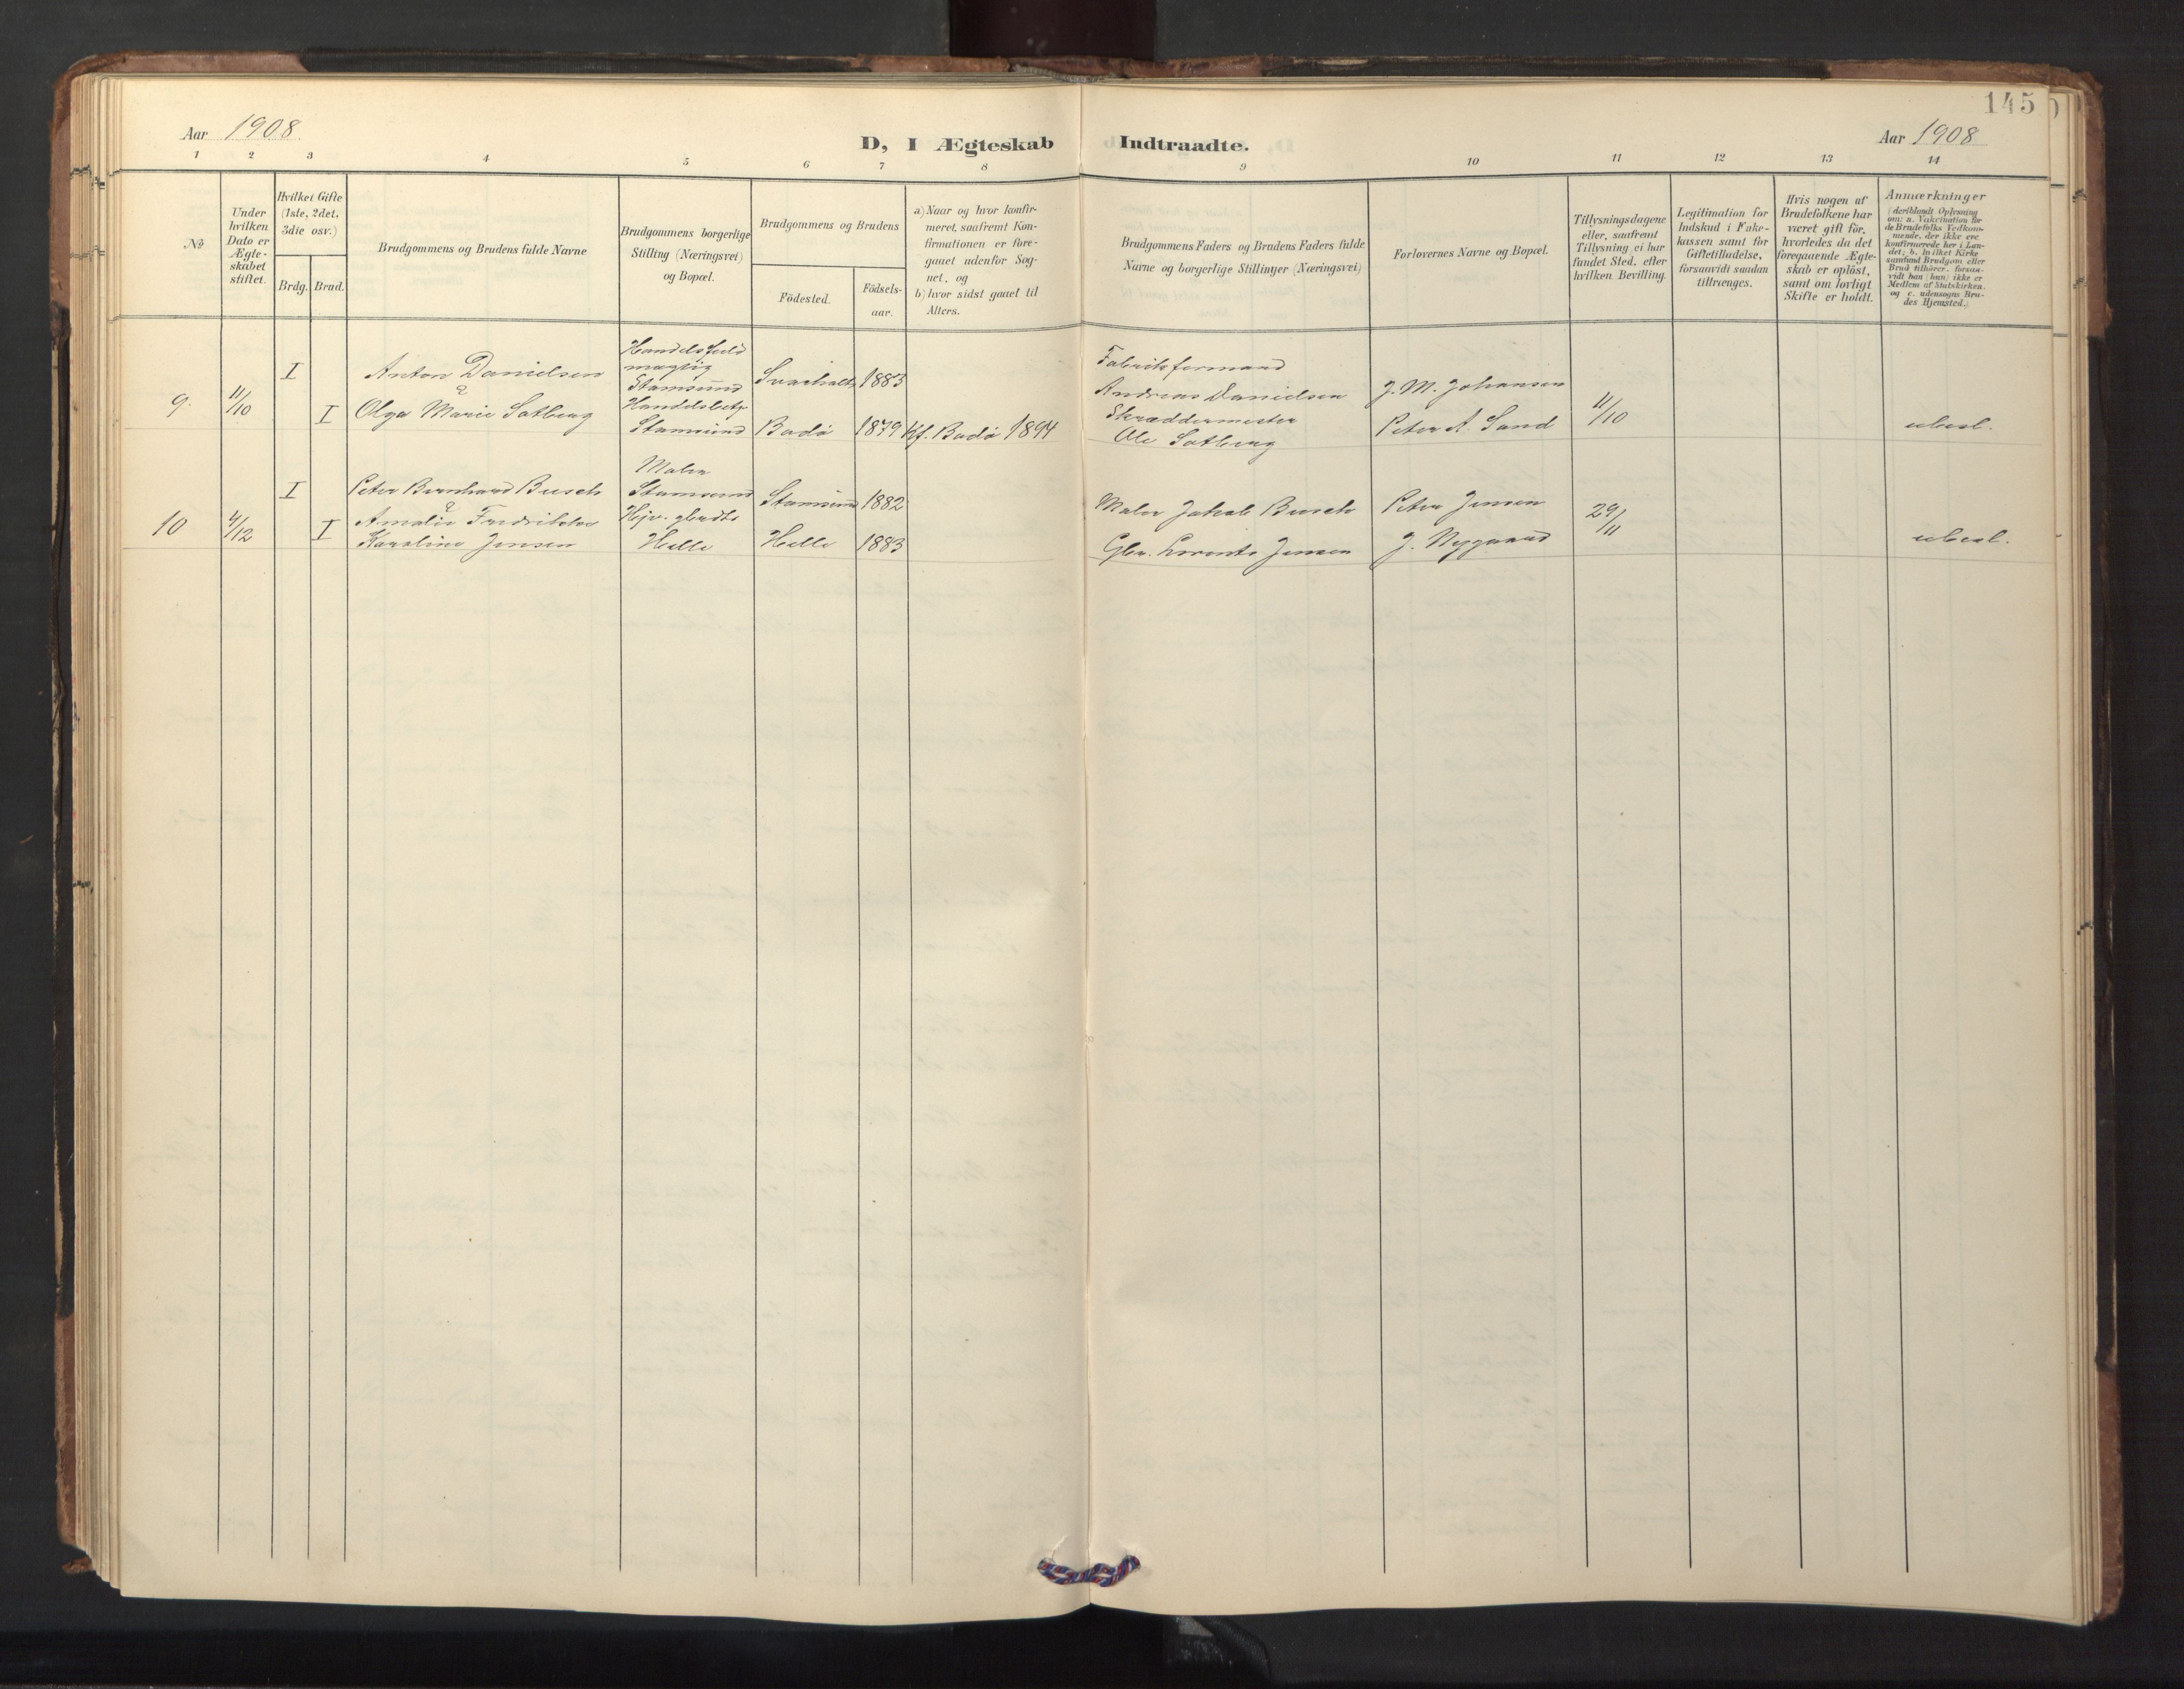 145
Aar 1908
D, I Ægteskab Indtraadte.
Aar 1908
1 2 3 4 5 6 7 8 9 10 11 12 13 14
No
Under
hvilken
Dato er
Ægte-
skabet
stiftet.
Hvilket Gifte
(1ste, 2det,
3die osv.)
Brdg. Brud.
Brudgommens og Brudens fulde Navne
Brudgommens borgerlige
Stilling (Næringsvei)
og Bopæl.
Brudgommens og Brudens
Födested.
Födsels-
aar.
a) Naar og hvor konfir-
meret, saafremt Kon-
firmationen er fore-
gaaet udenfor Sog-
net, og
b) hvor sidst gaaet til
Alters.
Brudgommens Faders og Brudens Faders fulde
Navne og borgerlige Stillinger (Næringsvei)
Forlovernes Navne og Bopæl.
Tillysningsdagene
eller, saafremt
Tillysning ei har
fundet Sted, efter
hvilken Bevilling.
Legitimation for
Indskud i Enke-
kassen samt for
Giftetilladelse,
forsaavidt saadan
tiltrænges.
Hvis nogen af
Brudefolkene har
været gift för,
hvorledes da det
foregaaende Ægte-
skab er oplöst,
samt om lovligt
Skifte er holdt.
Anmærkninger
(deriblandt Oplysning
om: a. Vaccination for
de Brudefolks Vedkom-
mende, der ikke ere
konfirmerede her i Lan-
det; b. hvilket Kirke
samfund Brudgom eller
Brud tilhører, forsaa-
vidt han (hun) ikke er
Medlem af Statskirken.
og c. udensogns Bru-
des Hjemsted.)
9. 11/10
I
Anton Danielsen
&
I
Olga Marie Solberg
Handelsfuld
mægtig
Stamsund
Handelsbetj.
Stamsund
Svarholt 1883
Bodø 1879 Kf. Bodø 1894
Fabrikformand
Andreas Danielsen
Skræddermester
Ole Solberg
J. M. Johansen
Peter A. Sand
11/10
ubesl.
10 4/12
I
Peter Bernhard Busch
&
I
Amalie Fredrikke
Karoline Jensen
Maler
Stamsund
Hjv. gbrdtr
Helle
Stamsund 1882
Helle 1883
Maler Jakob Busch
Gbr. Lorents Jensen
Peter Jensen
J. Nygaard
29/11
ubesl.